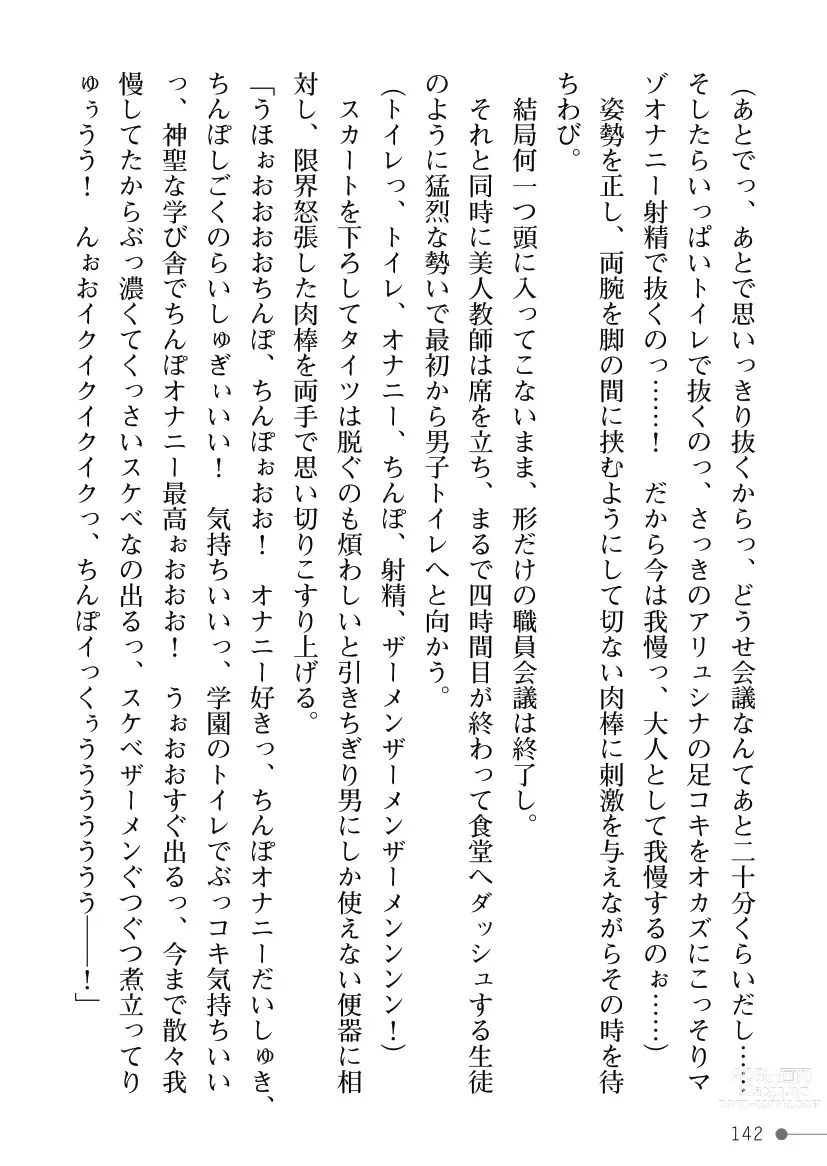 (あとでっ、あとで思いっきり抜くからっ、どうせ会議なんてあと二十分くらいだし……
そしたらいっぱいトイレで抜くのっ、さっきのアリュシナの足コキをオカズにこっそりマ
ゾオナニー射精で抜くのっ……！　だから今は我慢っ、大人として我慢するのぉ……)
　姿勢を正し、両腕を脚の間に挟むようにして切ない肉棒に刺激を与えながらその時を待
ちわび。
　結局何一つ頭に入ってこないまま、形だけの職員会議は終了し。
　それと同時に美人教師は席を立ち、まるで四時間目が終わって食堂へダッシュする生徒
のように猛烈な勢いで最初から男子トイレへと向かう。
(トイレっ、トイレ、オナニー、ちんぽ、射精、ザーメンザーメンザーメンンンン！)
　スカートを下ろしてタイツは脱ぐのも煩わしいと引きちぎり男にしか使えない便器に相
対し、限界怒張した肉棒を両手で思い切りこすり上げる。
「うほぉおおおおおちんぽ、ちんぽぉおお！　オナニー好きっ、ちんぽオナニーだいしゅき、
ちんぽしごくのらいしゅぎぃいい！　気持ちいいっ、学園のトイレでぶっコキ気持ちいい
っ、神聖な学び舎でちんぽオナニー最高ぉおおお！　うぉおおすぐ出るっ、今まで散々我
慢してたからぶっ濃くてくっさいスケベなの出るっ、スケベザーメンぐつぐつ煮立ってり
ゅぅうう！　んぉおイクイクイクイクっ、ちんぽイっくぅうううううう――！」
142